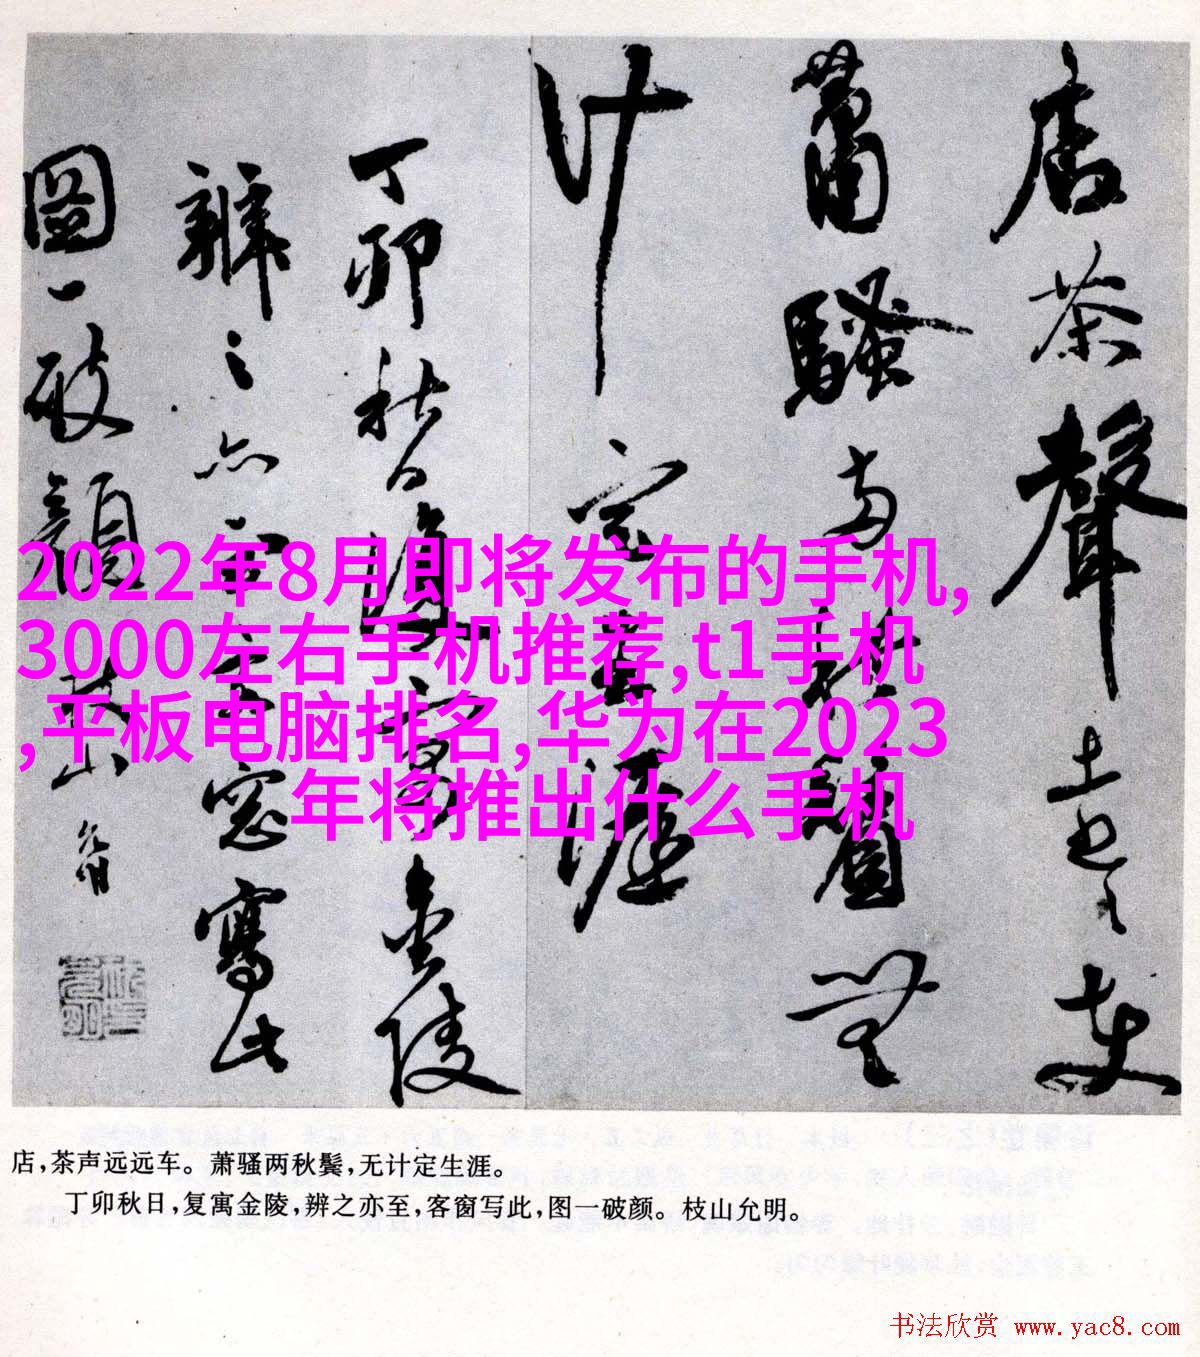 店茶聲遠遠車
蕭騷兩秋鬢無
計定生涯
丁卯秋日復寓金陵
辨之亦至客窓寫此
圖一破顏枝山允明
2022年8月即将发布的手机,
3000左右手机推荐,t1手机
,平板电脑排名,华为在2023
年将推出什么手机
店,茶声远远车。萧骚两秋鬓,无计定生涯。
丁卯秋日,复寓金陵,辨之亦至,客窗写此,图一破颜。枝山允明。
书法欣赏 www.yac8.com